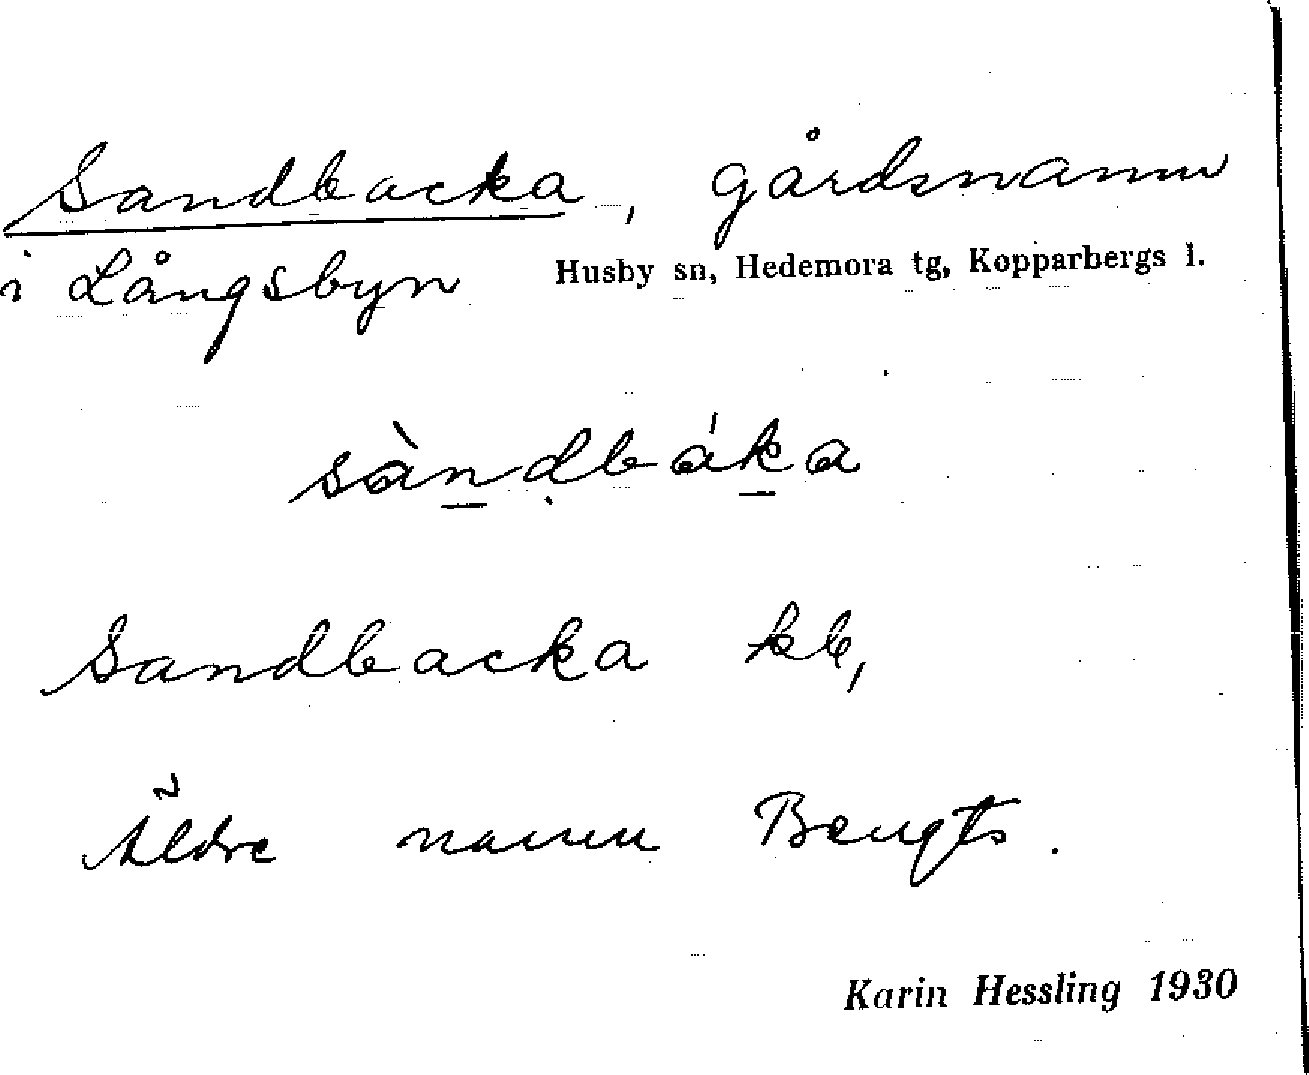 Sandbacka, gårdsnamn
i Långsbyn Husby sn, Hedemora tg, Kopparbergs l.
sàndbáka
Sandbacka kb,
Äldre namn Bengts.
Karin Hessling 1930